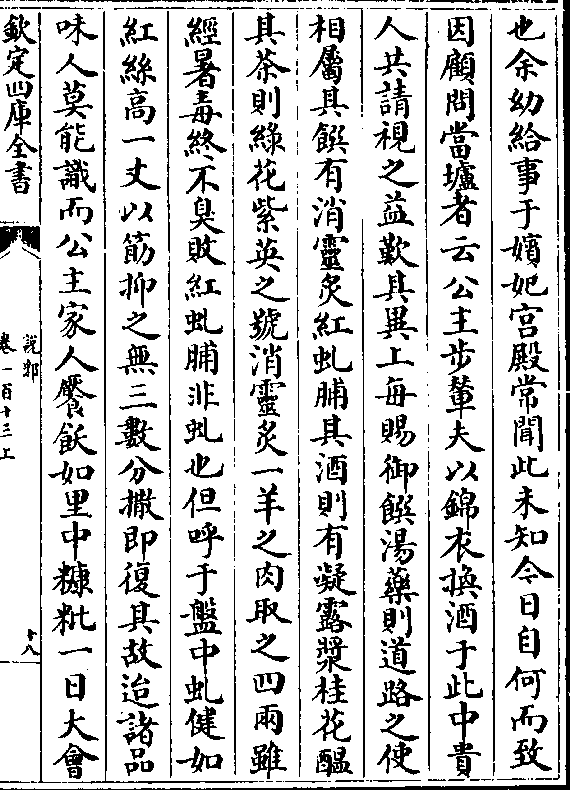 也余幼給事于嬪妃宫殿常聞此未知今日自何而致
因顧問當壚者云公主步輦夫以錦衣換酒于此中貴
人共請視之益歎其異上每賜御饌湯藥則道路之使
相屬其饌有消靈炙紅虬脯其酒則有凝露漿桂花醖
其茶則綠花紫英之號消靈炙一羊之肉取之四兩雖
經暑毒終不臭敗紅虬脯非虬也但呼于盤中虬健如
紅絲高一丈以筯抑之無三數分撒即復其故迨諸品
味人莫能識而公主家人饜飫如里中糠粃一日大會
欽定四庫全書
說郛
卷一百十三上
十八